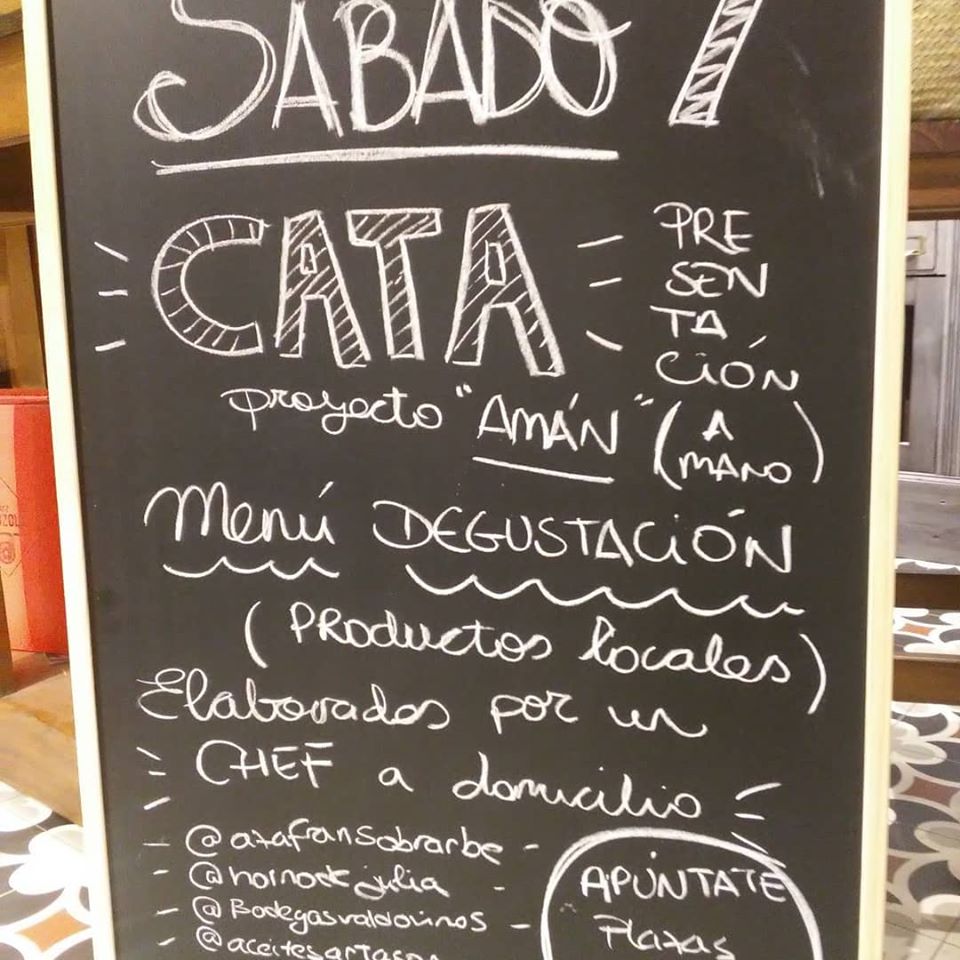 SÁBADO 7
CATA
PRE
SEN
TA
CIÓN
proyecto "AMÁN" (A MANO)
Menú DEGUSTACIÓN
(PRODUCTOS locales)
Elaborados por un
CHEF a domicilio
@azafransobrarbe
@hornodejulia
@Bodegasvaldovinos
APÚNTATE
Plazas